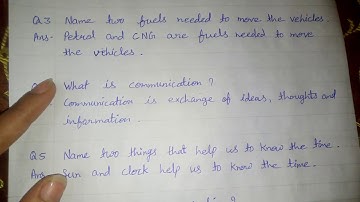 Q.3 Name two fuels needed to move the vehicles.
Ans. Petrol and CNG are fuels needed to move
the vehicles.
What is communication?
Communication is exchange of ideas, thoughts and
information.
Q5 Name two things that help us to know the time.
Ans Sun and clock help us to know the time.